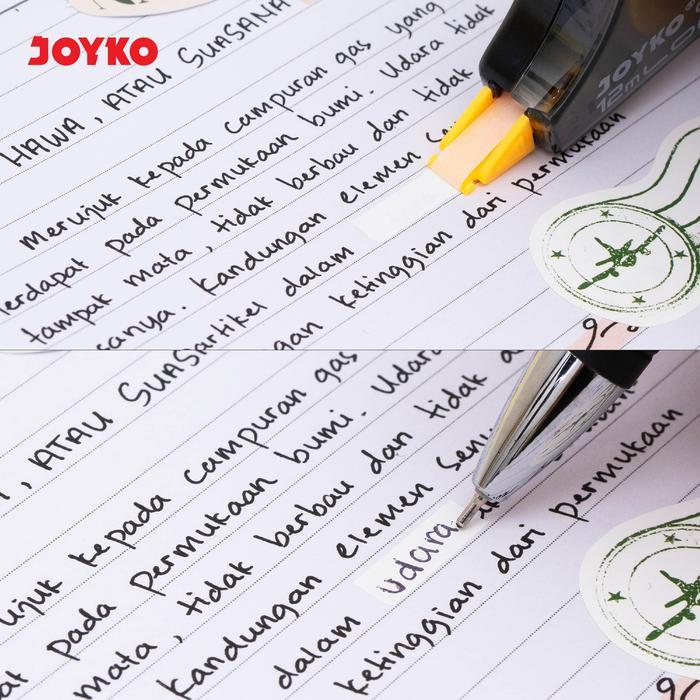 JOYKO
JOYKO
12m
HAWA, ATAU SUASANA
Merujuk kepada campuran gas yang
terdapat pada permukaan bumi. Udara tidak
tampak mata, tidak berbau dan tidak
sanya. Kandungan elemen
artikel dalam
gan ketinggian dari permukaan
, ATAU SUAS
ujuk kepada campuran gas
pada permukaan bumi. Udara
mata, tidak berbau dan tidak
kandungan elemen
dalam udara
ketinggian dari permukaan